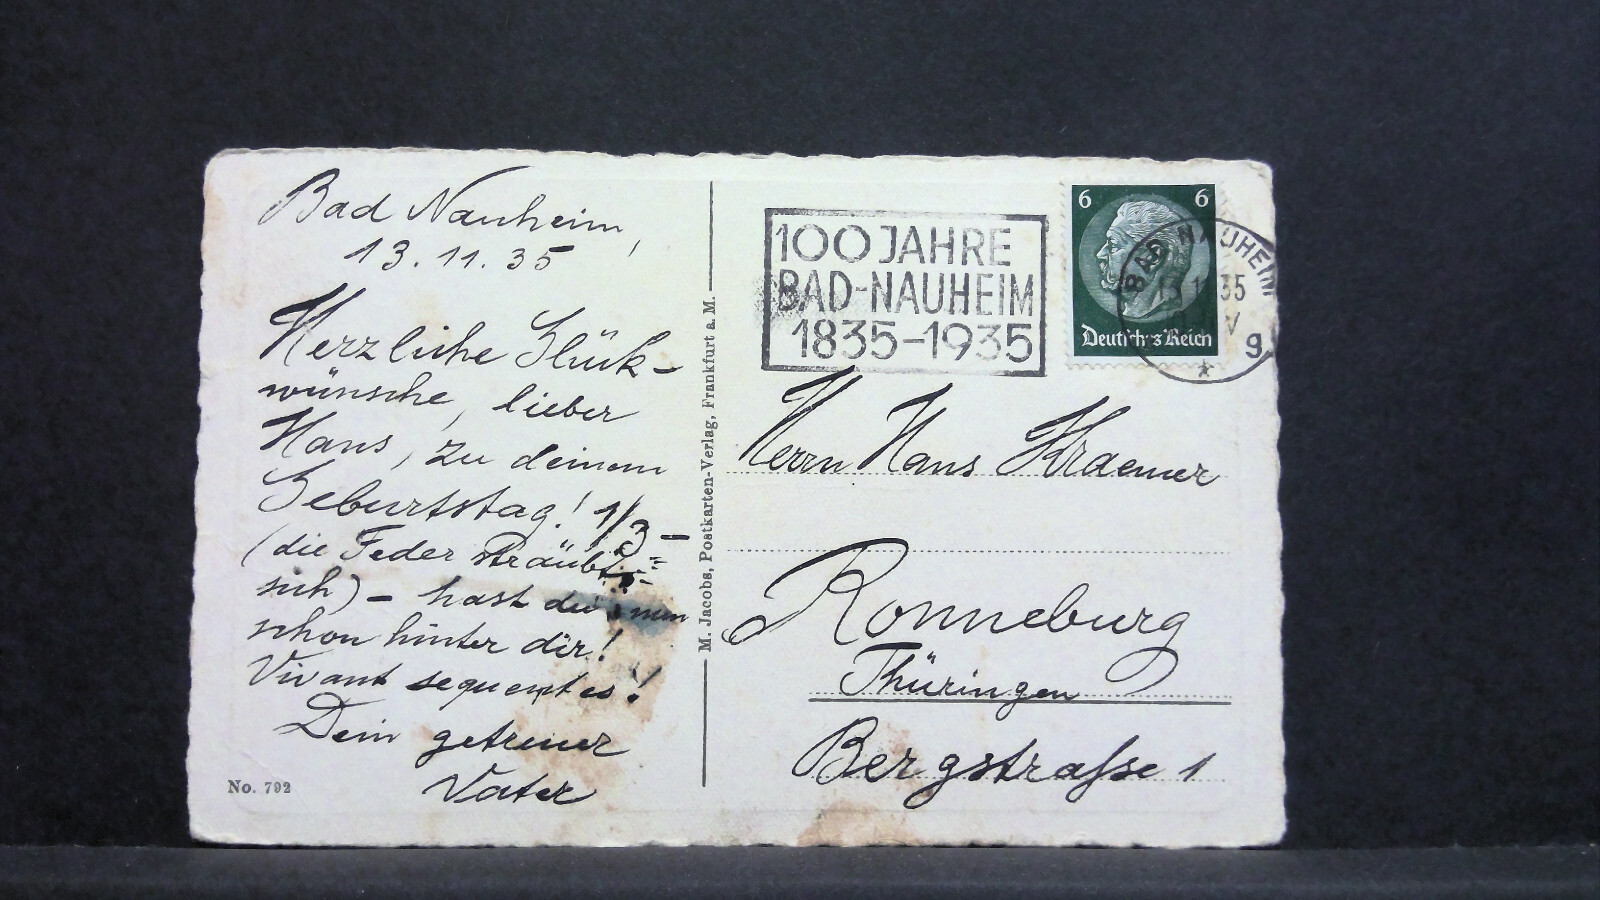 Bad Nauheim,
13.11.35
Herzliche Glück-
wünsche, lieber
Hans, zu deinem
Geburtstag! 1/3 –
(die Feder sträubt
sich) – hast du nun
schon hinter dir!
Vivant sequentes!
Dein getreuer
Vater
No. 792
M. Jacobs, Postkarten-Verlag, Frankfurt a. M.
100 JAHRE
BAD-NAUHEIM
1835-1935
6 6
Deutsches Reich
BAD NAUHEIM
35
g
Herrn Hans Kraemer
Ronneburg
Thüringen
Bergstraße 1